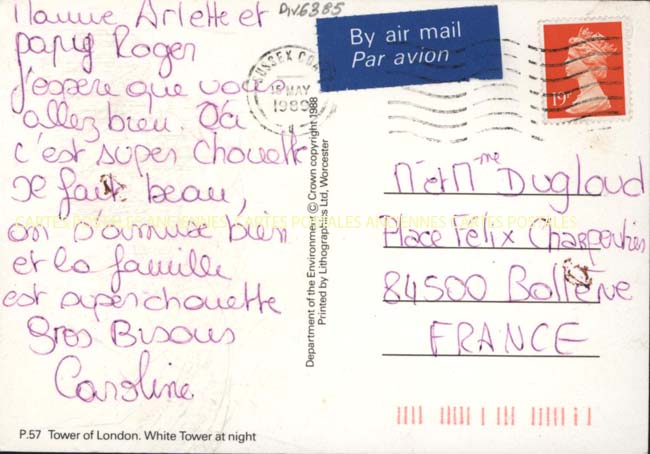 Mamie Arlette et
papy Roger
j'espère que vous
allez bien. Ici
c'est super chouette
Il fait beau,
on s'amuse bien
et la famille
est super chouette
Gros Bisous
Caroline
P.57 Tower of London. White Tower at night
Div.6385
Department of the Environment © Crown copyright 1988
Printed by Lithographics Ltd, Worcester
By air mail
Par avion
SUSSEX COAST
MAY
1989
19
M et Mme Dugloud
Place Félix Charpentier
84500 Bollène
FRANCE
CARTES POSTALES ANCIENNES CARTES POSTALES ANCIENNES CARTES POSTALES